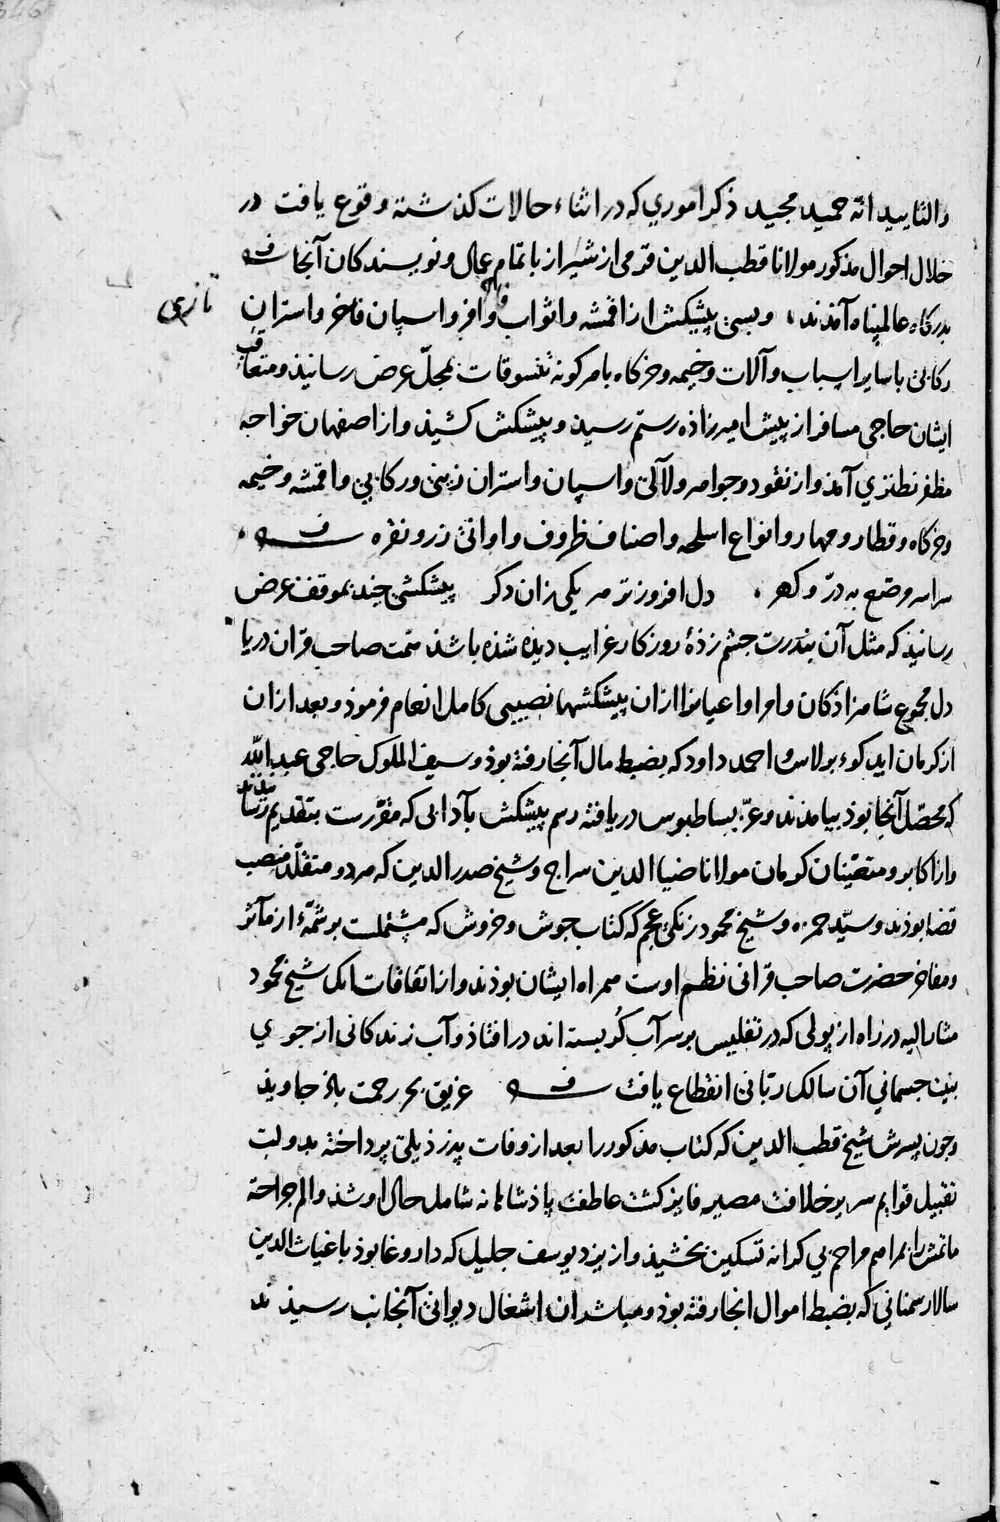 والتایید انه حمید مجید ذکر اموری که در اثناء حالات کذشته وقوع یافت در
خلال احوال مذکور مولانا قطب الدین قرمی از شیراز با تمام عمال و نویسندکان آنجا
بدرکاه عالمپناه آمدند، و بسی پیشکش از اقمشه و اثواب وافر و اسپان فاخر و استران
تازی
رکابی با سایر اسباب و آلات و خیمه و خرکاه با هر کونه تنسوقات بمحلّ عرض رسانیذ و متعاقب
ایشان حاجی مسافر از پیش امیرزاذه رستم رسیذ و پیشکش کشیذ و از اصفهان خواجه
مظفر نطنزی آمذ و از نقود و جواهر و لآلی و اسپان و استران زینی و رکابی و اقمشه و خیمه
و خرکاه و قطار و مهار و انواع اسلحه و اصناف ظروف و اوانی زر و نقره
سراسر مرصّع به درّ و کهر . دل افروزتر هر یکی زان دکر پیشکشی چند بموقف عرض
رسانیذ که مثل آن بندرت چشم زذۀ روزکار غرایب دیذه شذه باشذ همت صاحب قران دریا
دل مجموع شاهزاذکان و امرا و اعیانرا از آن پیشکشها نصیبی کامل انعام فرموذ و بعد از آن
از کرمان ایدکوء برلاس احمد داود که بضبط مال آنجا رفته بوذ و سیف الملوک حاجی عبد الله
که محصّل آنجا بوذ بیامدند و عزّ بساطبوس دریافته رسم پیشکش بآدابی که مقرّرست بتقدیم رسانیدند
و از اکابر و متعیّنان کرمان مولانا ضیا الدین سراج و شیخ صدر الدین که هر دو متقلّد منصب
قضا بوذند و سیّد حمزه و شیخ محمود زنکی عجم که کتاب جوش و خروش که مشتملست بر شمّۀ از مآثر
و مفاخر حضرت صاحب قرانی نظم اوست همراه ایشان بوذند و از اتفاقات انک شیخ محمود
مشار الیه در راه از پولی که در تفلیس بر سر آب کُر بسته اند در افتاذ و آب زندکانی از جوی
بنیت جسمانی آن سالک ربّانی انقطاع یافت غریق بحر رحمت باذ جاویذ
و چون پسرش شیخ قطب الدین که کتاب مذکور را بعد از وفات پدر ذیلی پرداخته بدولت
تقبیل قوایم سریر خلافت مصیر فایز کشت عاطفت پاذشاهانه شامل حال او شذ و الم جراحت
ماتمش را بمراهم مراحم بی کرانه تسکین بخشیذ و از یزد یوسف جلیل که داروغا بوذ با غیاث الدین
سالار سمنانی که بضبط اموال انجا رفته بوذ و مباشران اشغال دیوانی آنجانب رسیذند